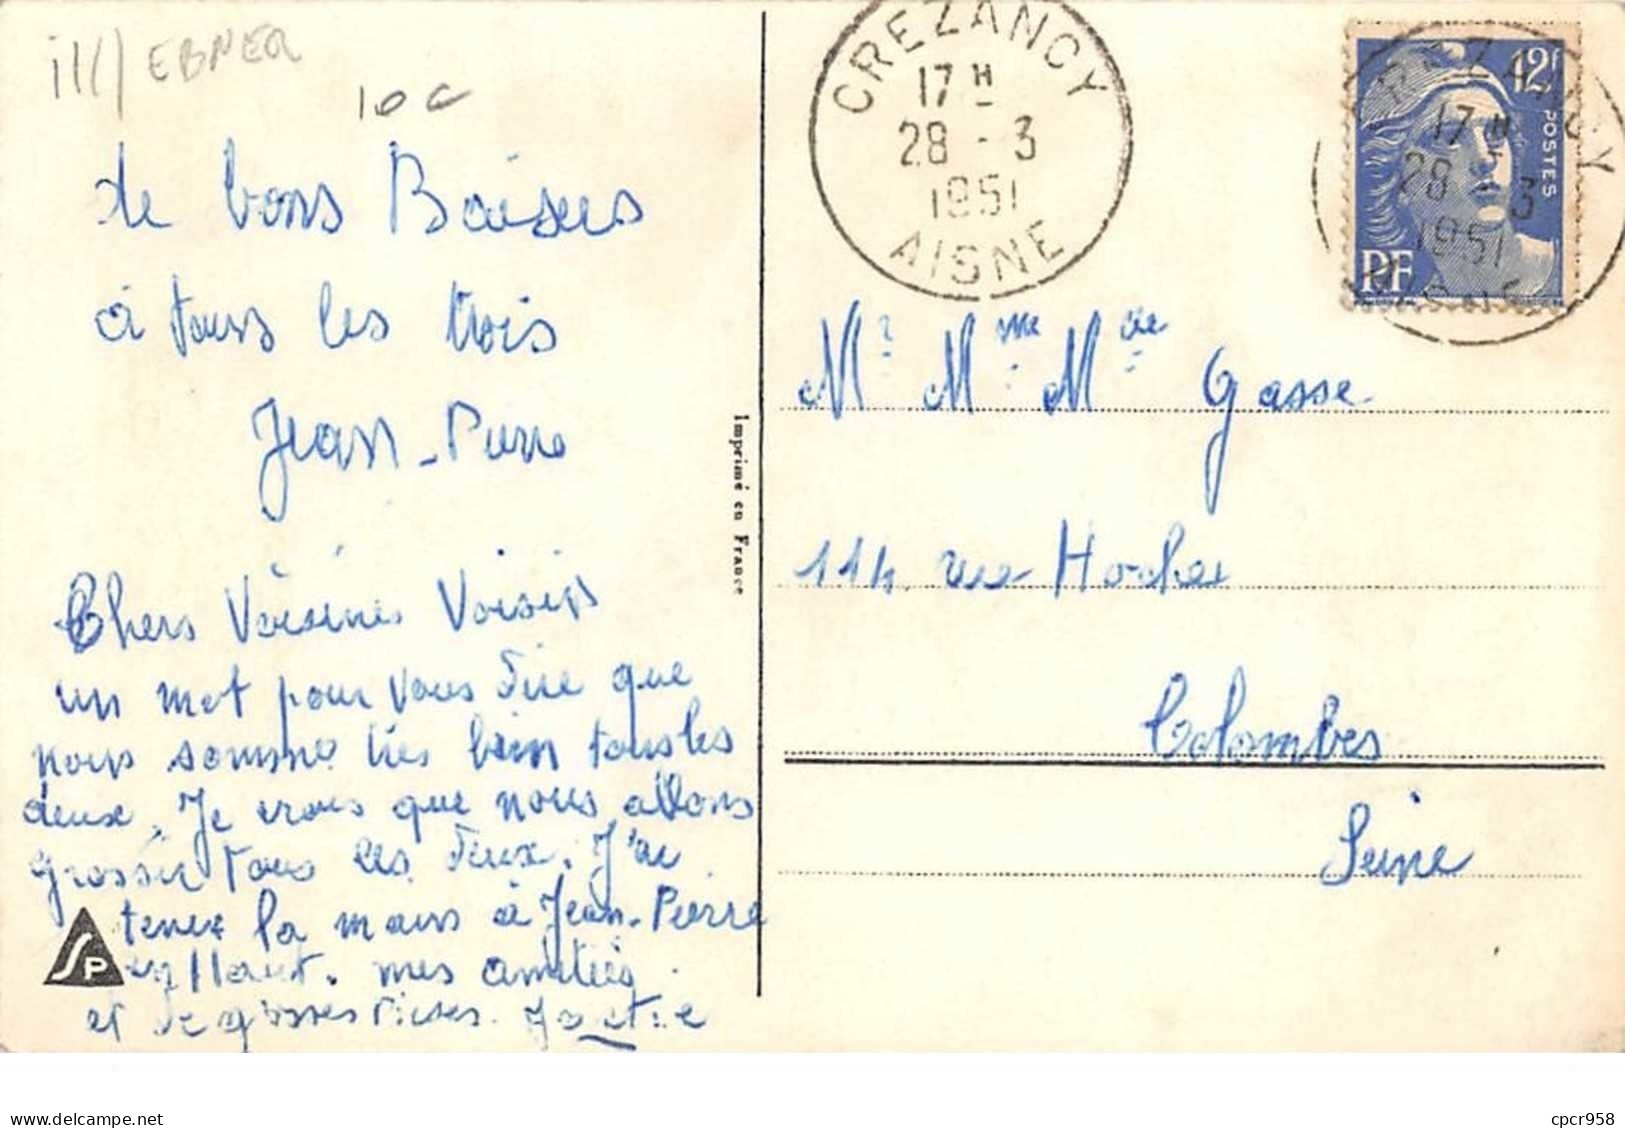 ill/ EBNER
10 c
de bons Baisers
à tous les trois
Jean-Pierre
Chers Voisines Voisins
un mot pour vous dire que
nous somme très bien tous les
deux. Je crois que nous allons
grossir tous les deux. J'ai
tenez la main à Jean-Pierre
en Haut. mes amitiés
et de grosses bises.
SP
Imprimé en France
CREZANCY
17 H
28 - 3
1951
AISNE
12f
POSTES
RF
CREZANCY
17 H
28 - 3
1951
AISNE
Mr Mme Mde Gasse
114 rue Hoche
Colombes
Seine
delcampe.net
cpcr958